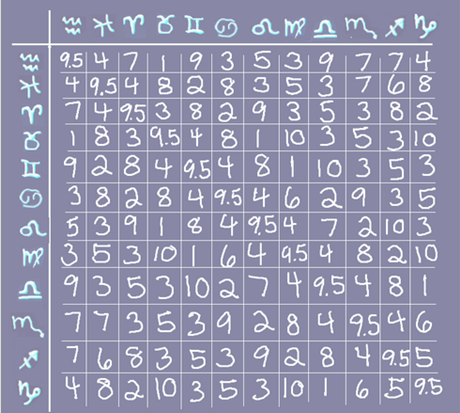 ♒ ♓ ♈ ♉ ♊ ♋ ♌ ♍ ♎ ♏ ♐ ♑
♒ 9.5 4 7 1 9 3 5 3 9 7 7 4
♓ 4 9.5 4 8 2 8 3 5 3 7 6 8
♈ 7 4 9.5 3 8 2 9 3 5 3 8 2
♉ 1 8 3 9.5 4 8 1 10 3 5 3 10
♊ 9 2 8 4 9.5 4 8 1 10 3 5 3
♋ 3 8 2 8 4 9.5 4 6 2 9 3 5
♌ 5 3 9 1 8 4 9.5 4 7 2 10 3
♍ 3 5 3 10 1 6 4 9.5 4 8 2 10
♎ 9 3 5 3 10 2 7 4 9.5 4 8 1
♏ 7 7 3 5 3 9 2 8 4 9.5 4 6
♐ 7 6 8 3 5 3 9 2 8 4 9.5 5
♑ 4 8 2 10 3 5 3 10 1 6 5 9.5